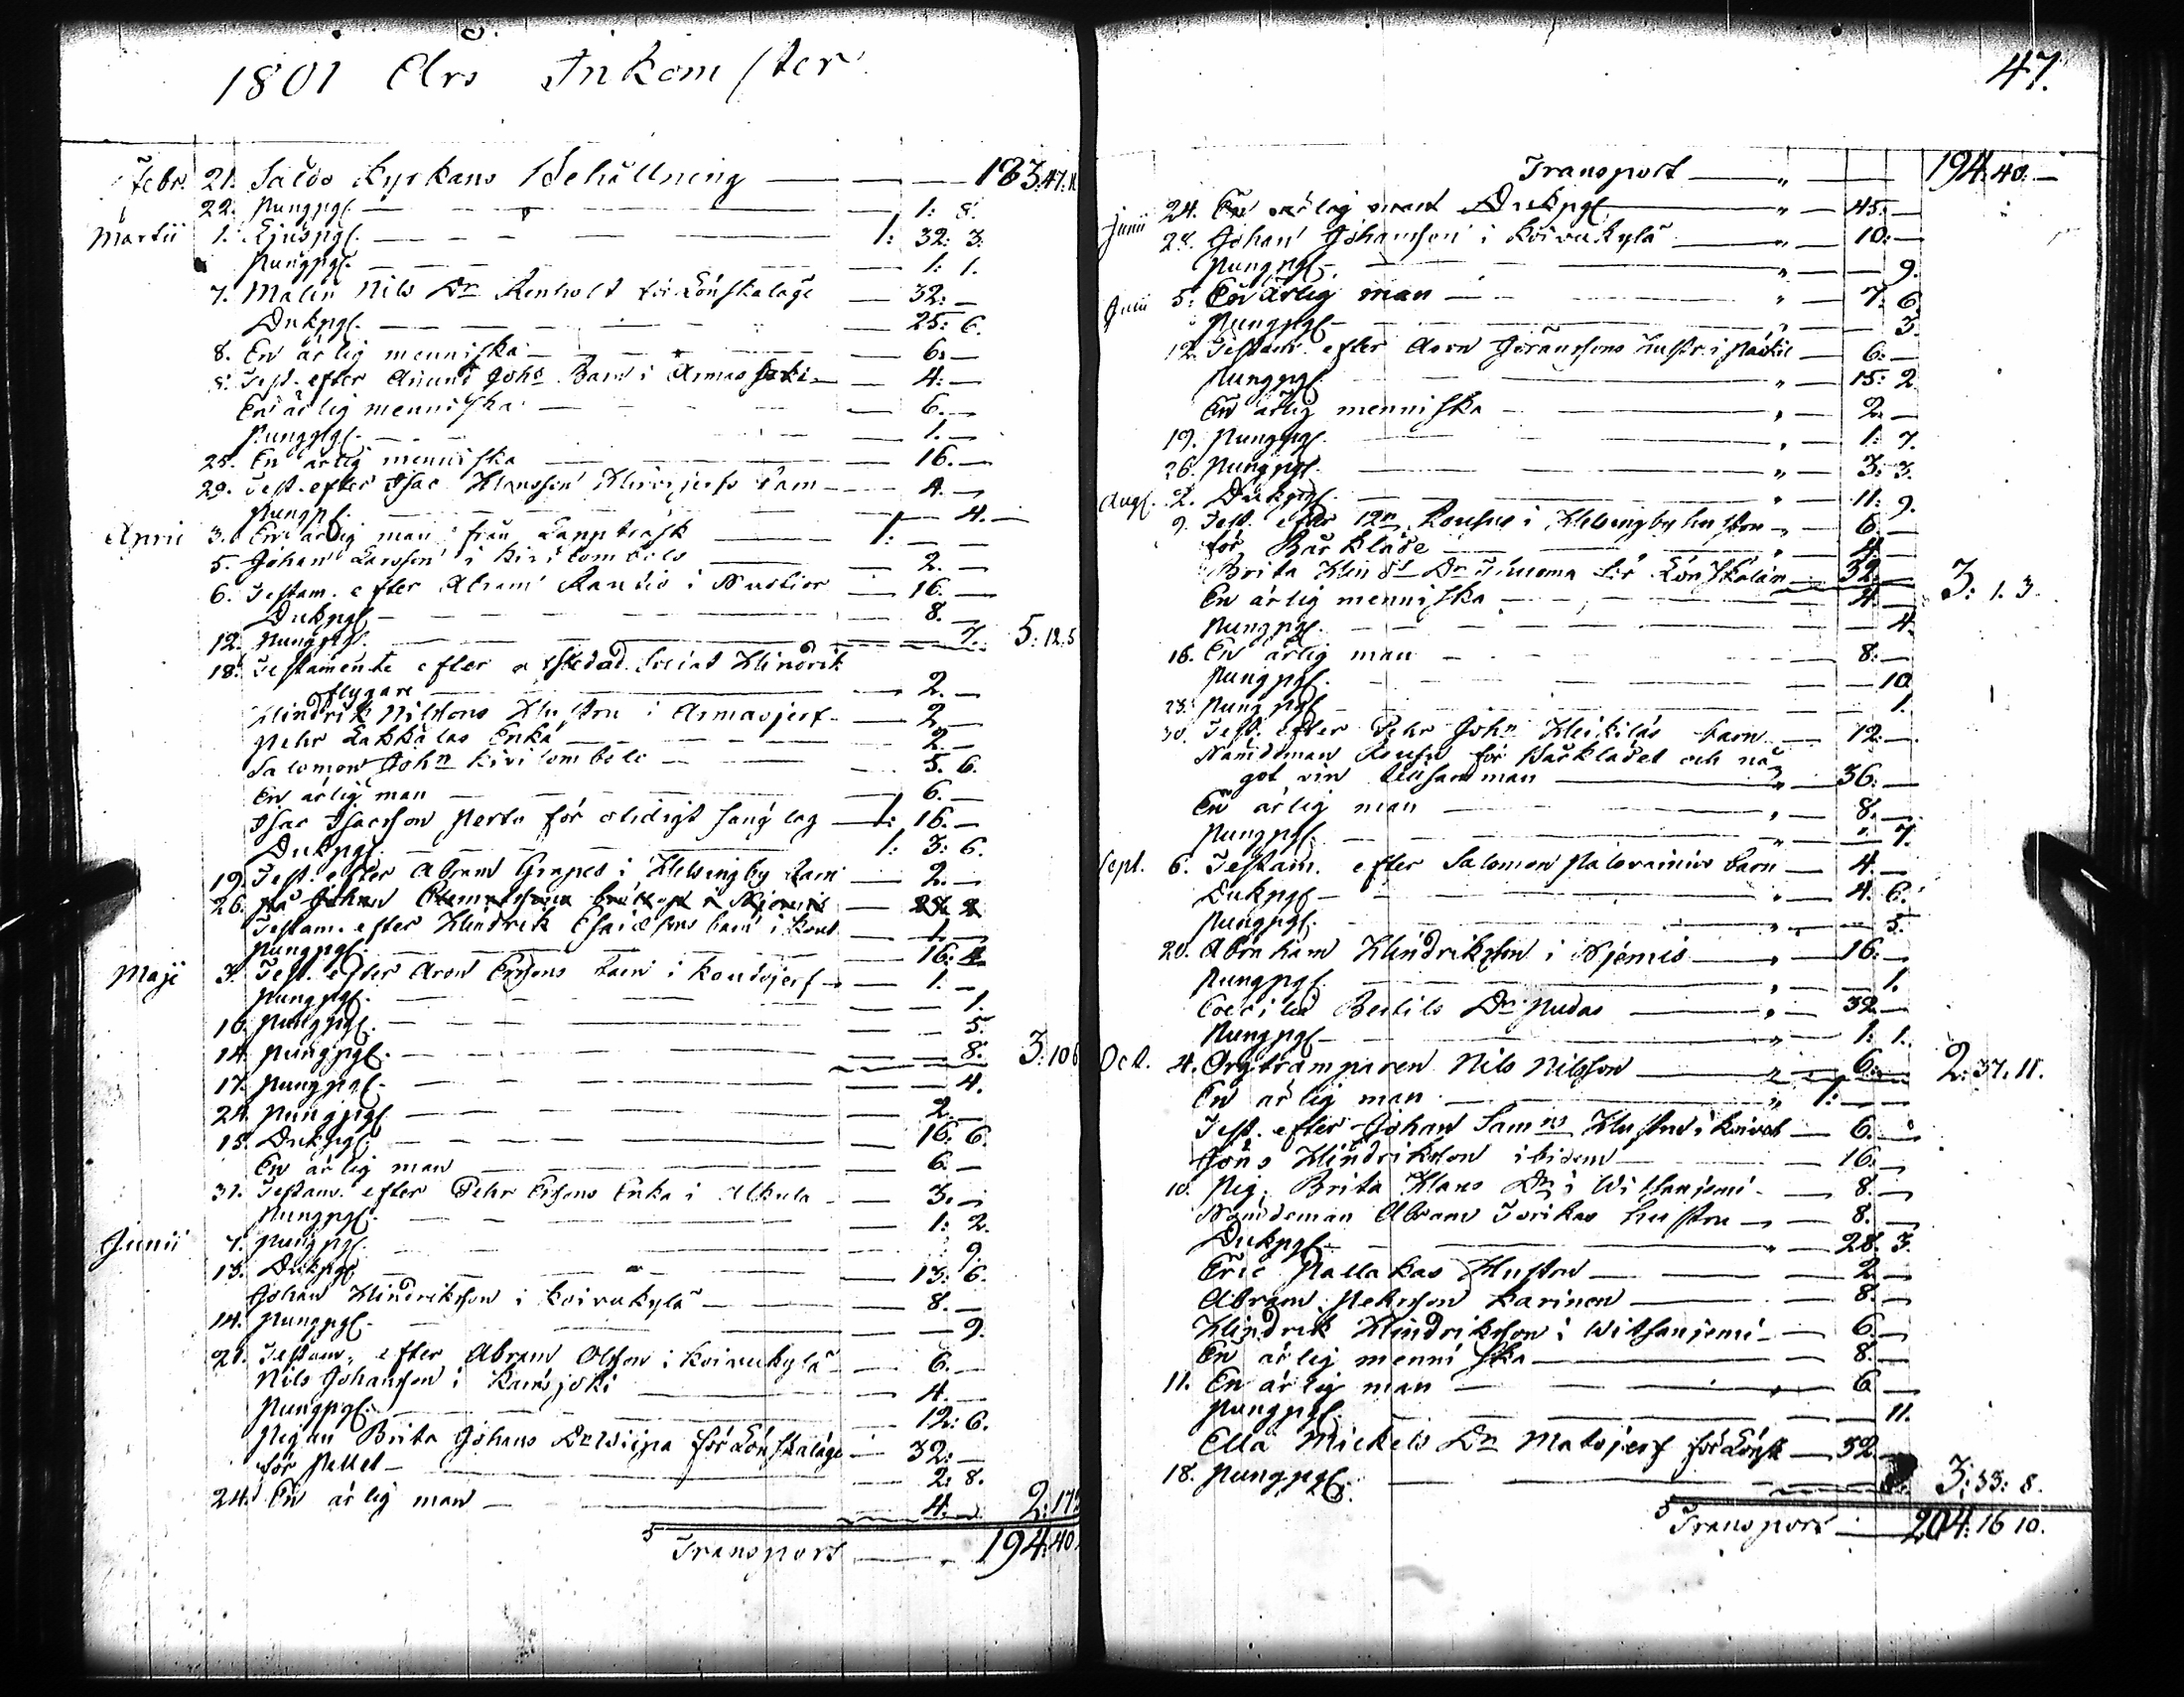 1801 Års Inkomster
Febr. 21. Saldo Kyrkans Behållning 183.47.11
22. Pungpgr. 1: 8.
Martii 1. Ljuspgr. 1: 32: 3.
Pungpgr. 1: 1.
7. Malin Nils Dr Renholt för Lönskaläge 32:
Dukpgr. 25: 6.
8. En ärlig menniska 6.
8. Test. efter Anund Johs Barn i Armassaki 4.
En ärlig menniska 6.
Pungpgr. 1.
25. En ärlig menniska 16.
29. Test. efter Isac Hansson barn 4.
Pungpgr. 4.
April 3. En ärlig man från Lappträsk 1:
5. Johan Larsson i Kivilombolo 2.
6. Testam. efter Abram Rautio i 16.
Dukpgr. 8.
12. Pungpgr. 7. 5:12.5
18. Testamente efter Hindrik
flygare 2.
Hindrik Nilssons Hustru i Armasjerf 2.
Pehr Lakkalas Enka 2.
Salomon Johs Kivilombolo 5. 6.
En ärlig man 6.
Isac Isacsson Perto för olidigt säng lag 1: 16.
Dukpgr. 1: 3: 6.
19. Test. efter Abram Grapes i Helsingby barn 2.
26. på Johan
Testam. efter Hindrik Esaiassons barn i 1.
Pungpgr. 16: 4
Maji 3. Test. efter Aron Ersons barn i Koutojerf 1.
Pungpgr. 1.
10. Pungpgr. 5.
14. Pungpgr. 8. 3:10 6
17. Pungpgr. 4.
24. Pungpgr. 2.
15. Dukpgr. 16: 6
En ärlig man 6.
31. Testam. efter Pehr Ersons Enka i Alkula 3.
Pungpgr. 1: 2.
Junii 7. Pungpgr. 9.
13. Dukpgr. 13: 6.
Johan Hindriksson i Koivukylä 8.
14. Pungpgr. 9.
21. Testam. efter Abram Olsson i Koivukylä 6.
Nils Johansson i Kainsjoki 4.
Pungpgr. 12: 6.
Pigan Brita Johans Dr för Lönskaläge 32:
för Pellet 2: 8.
24. En ärlig man 4. 2:17
Transport 194:40.
47.
Transport 194:40.
Junii 24. En ärlig man Dukpgr. 45:
28. Johan Johansson i Koivukylä 10:
Pungpgr. 9.
Julii 5. En ärlig man 7: 6
Pungpgr. 3.
12. Testam. efter Aron Göranssons Hustr. i 6.
Pungpgr. 15: 2
En ärlig menniska 2.
19. Pungpgr. 1: 7.
26. Pungpgr. 3: 3.
Aug. 2. Dukpgr. 11: 9.
9. Test. efter i Helsingby hustru 6.
för Bår Kläde 4
Brita Hind Dr för Lönskaläge 32.
En ärlig menniska 4. 3: 1. 3.
Pungpgr. 4.
16. En ärlig man 8.
Pungpgr. 10
23. Pungpgr. 1.
30. Test. efter Pehr Johs Heikiläs barn 12.
Nämdeman för Bårklädet och nå
got vin 36:
En ärlig man 8.
Pungpgr. 7.
Sept. 6. Testam. efter Salomon Palovainio barn 4.
Dukpgr. 4. 6.
Pungpgr. 5.
20. Abraham Hindriksson i Niemis 16.
Pungpgr. 1.
Coecilia Bertils Dr Pudas 32
Pungpgr. 1: 1.
Oct. 4. Orgtramparen Nils Nilsson 6. 2:37.11.
En ärlig man 1:
Test. efter Johan Hustru i 6.
Jöns Hindriksson ibidem 16.
10. Pig. Brita Hans Dr i Witsaniemi 8.
Nämdeman Abram hustru 8.
Dukpgr. 28: 3.
Eric Pallakas Hustru 2.
Abram Pehrsson Karinen 8.
Hindrik Hindriksson i Witsaniemi 6.
En ärlig menniska 8.
11. En ärlig man 6
Pungpgr. 11.
Ella Mickels Dr Matojerf för Lönsk 32
18. Pungpgr. 3:33: 8.
Transport 204:16 10.